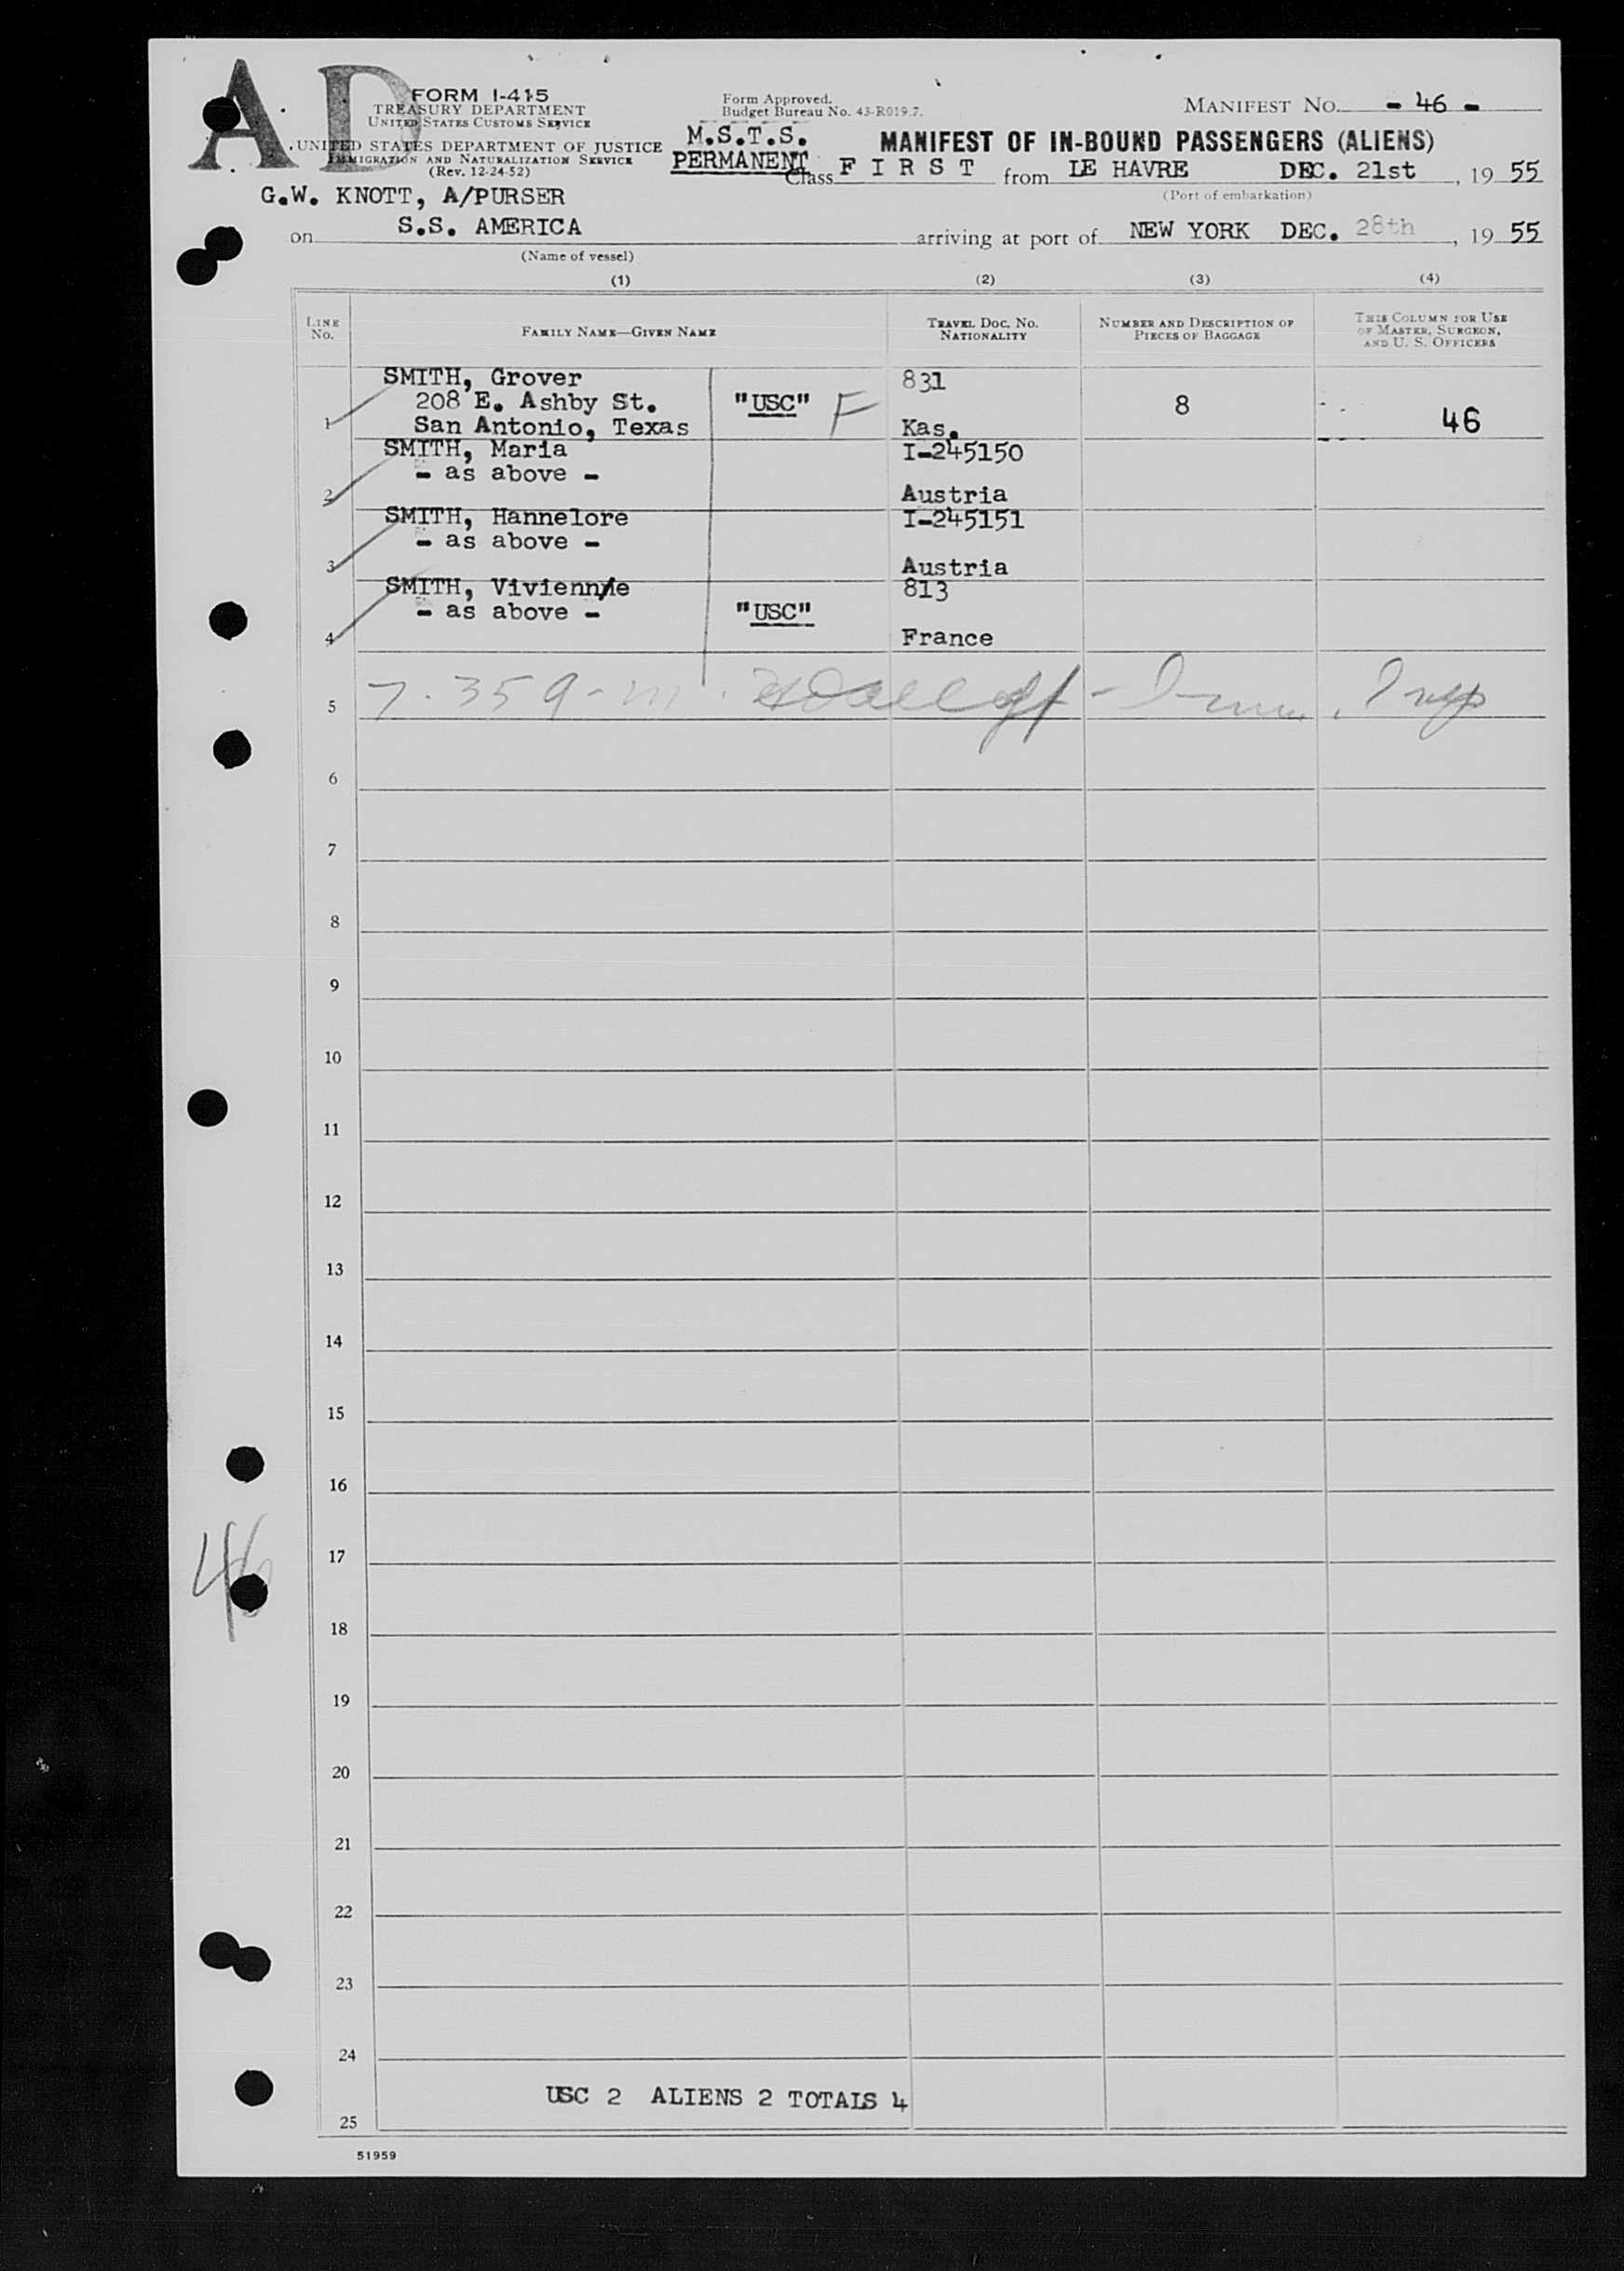 AD
FORM I-415
TREASURY DEPARTMENT
UNITED STATES CUSTOMS SERVICE
UNITED STATES DEPARTMENT OF JUSTICE
IMMIGRATION AND NATURALIZATION SERVICE
(Rev. 12-24-52)
Form Approved.
Budget Bureau No. 43-R019.7.
MANIFEST NO. - 46 -
M.S.T.S.
PERMANENT
MANIFEST OF IN-BOUND PASSENGERS (ALIENS)
Class FIRST from LE HAVRE DEC. 21st, 1955
(Port of embarkation)
G.W. KNOTT, A/PURSER
on S.S. AMERICA arriving at port of NEW YORK DEC. 28th, 1955
(Name of vessel)
(1) (2) (3) (4)
LINE NO.
FAMILY NAME—GIVEN NAME
TRAVEL DOC. NO.
NATIONALITY
NUMBER AND DESCRIPTION OF
PIECES OF BAGGAGE
THIS COLUMN FOR USE
OF MASTER, SURGEON,
AND U. S. OFFICERS
1 SMITH, Grover 831
208 E. Ashby St. "USC" F 8 46
San Antonio, Texas Kas.
2 SMITH, Maria I-245150
- as above -
Austria
3 SMITH, Hannelore I-245151
- as above -
Austria
4 SMITH, Vivienne 813
- as above - "USC"
France
5 7.359-m.
6
7
8
9
10
11
12
13
14
15
16
17
46
18
19
20
21
22
23
24
USC 2 ALIENS 2 TOTALS 4
25
51959